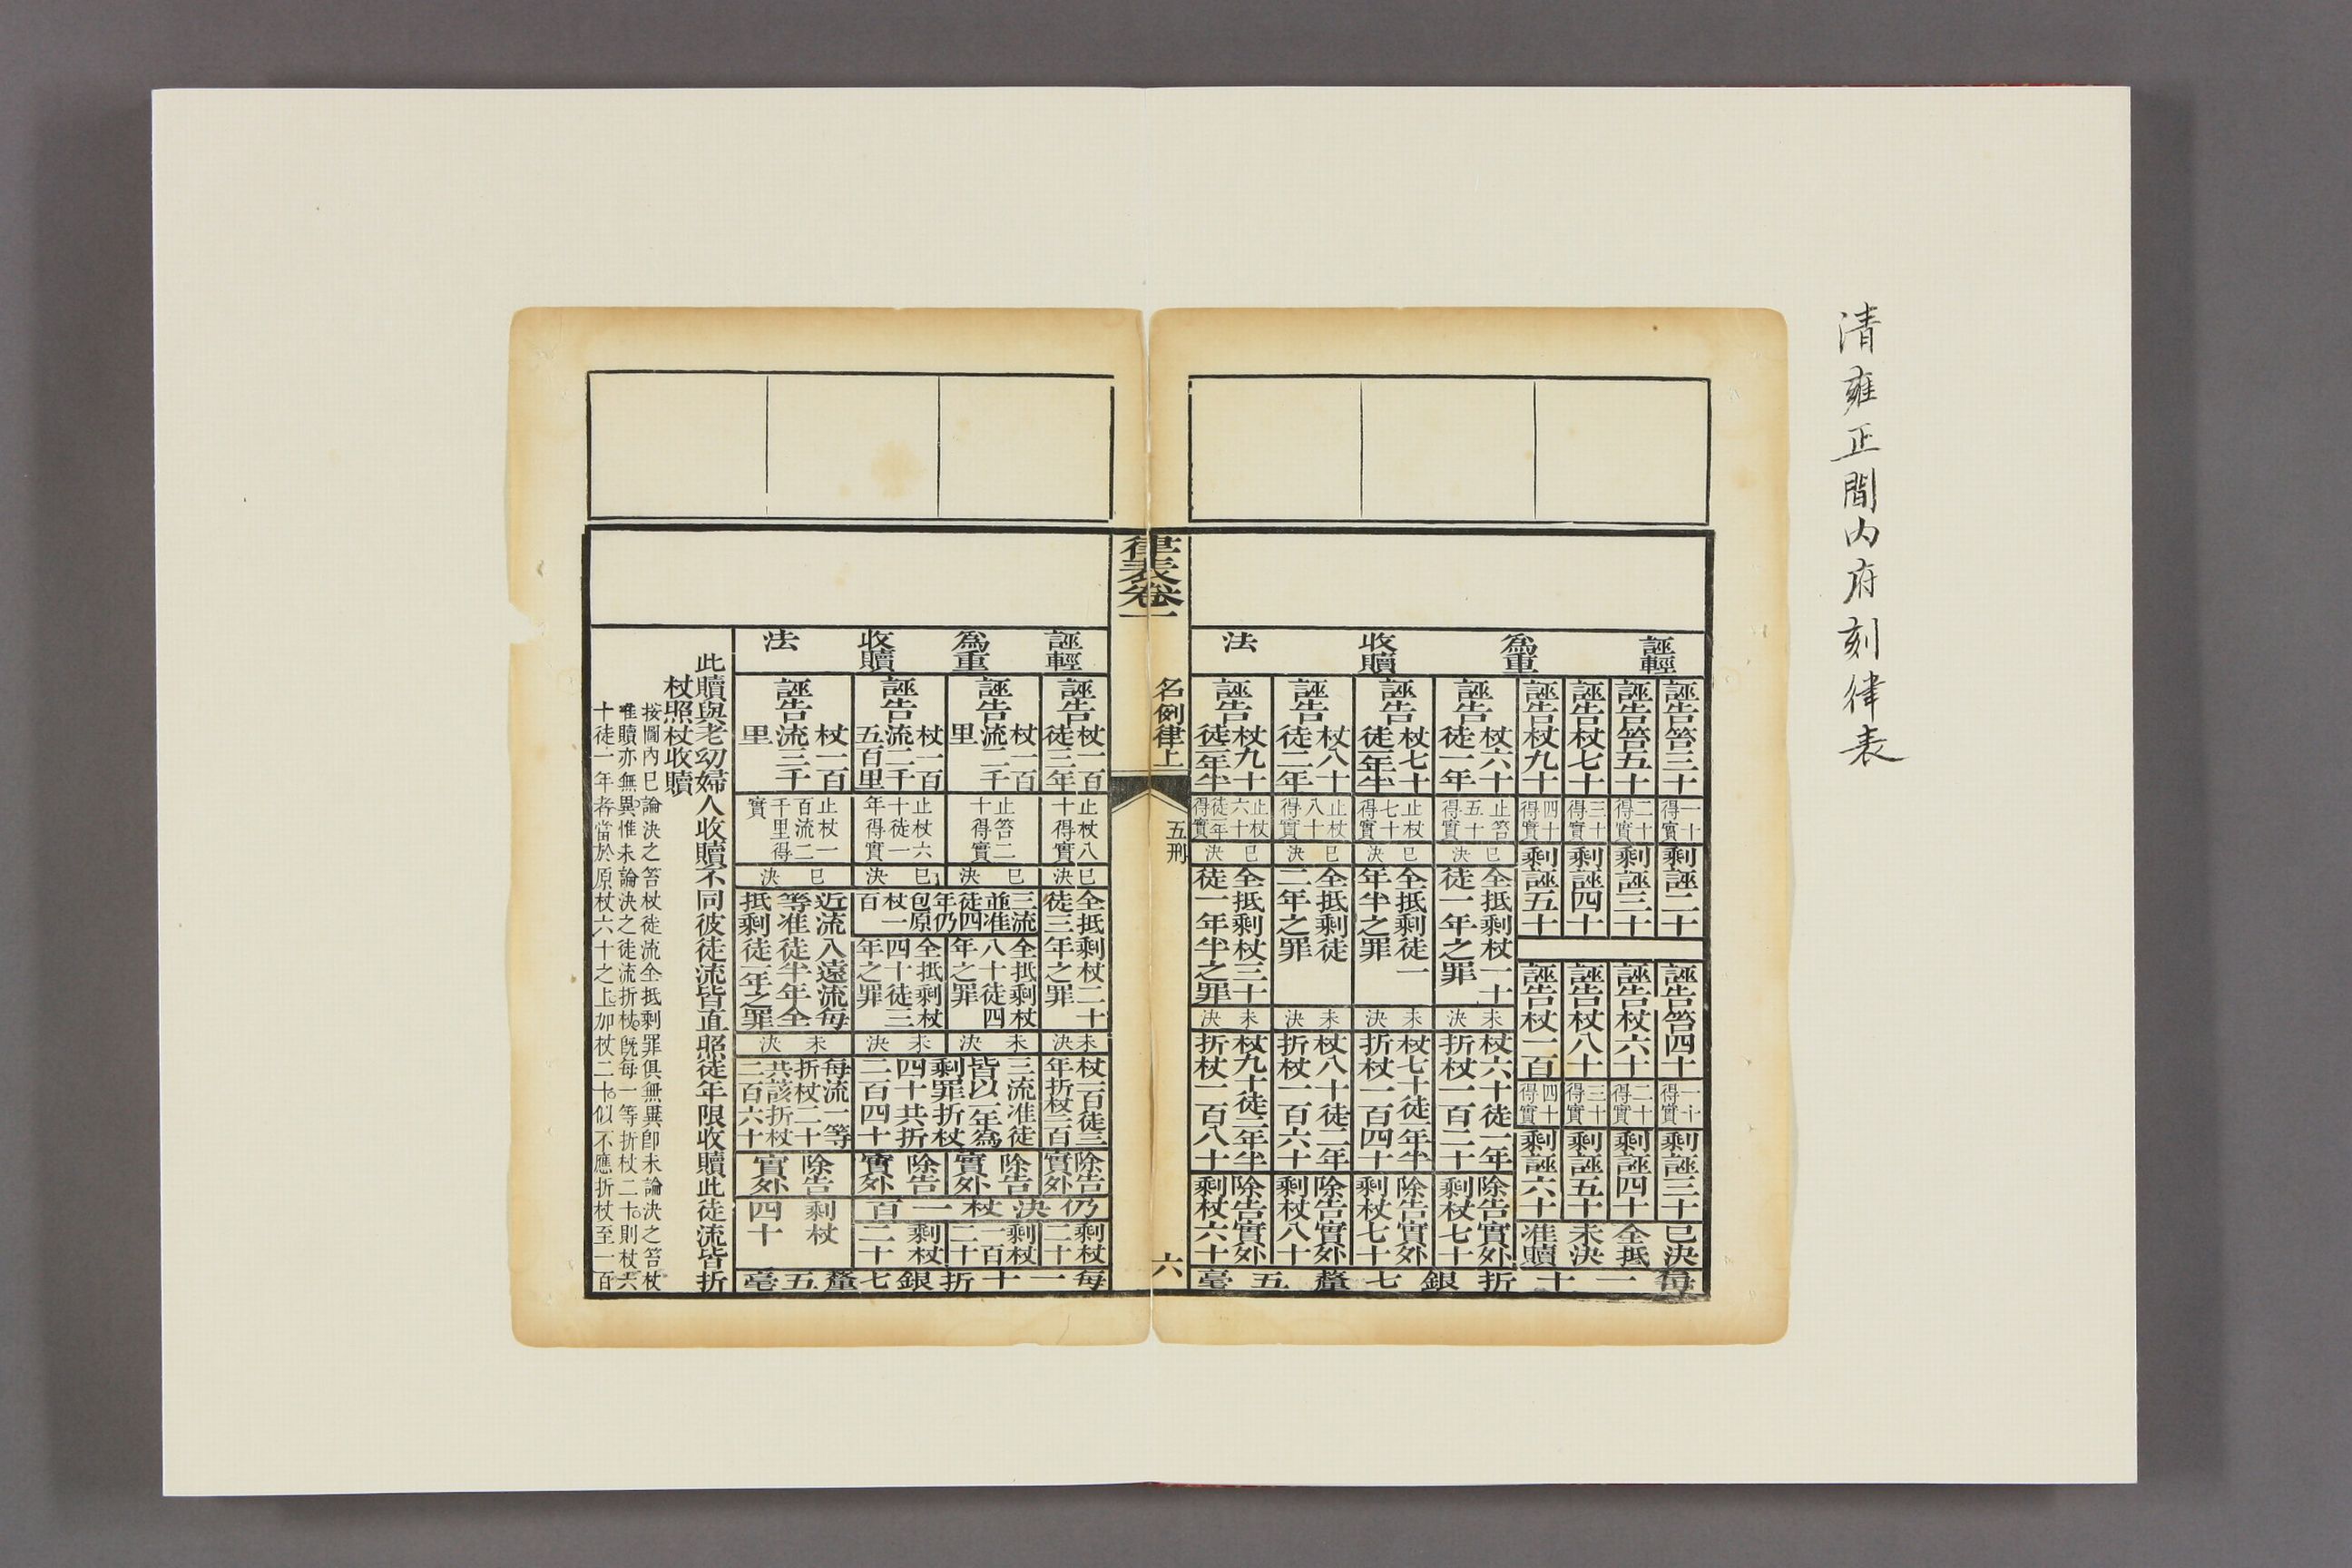 清雍正間內府刻律表
誣輕為重收贖法
誣告笞三十
得一十實
剩誣二十
誣告笞四十
得一十實
剩誣三十
誣告笞五十
得二十實
剩誣三十
誣告杖六十
得二十實
剩誣四十
誣告杖七十
得三十實
剩誣四十
誣告杖八十
得三十實
剩誣五十
誣告杖九十
得四十實
剩誣五十
誣告杖一百
得四十實
剩誣六十
已決全抵未決准贖
誣告杖六十徒一年
止笞五十得實
已決
全抵剩杖一十徒一年之罪
未決
杖六十徒一年折杖一百二十
除告實外剩杖七十
誣告杖七十徒一年半
止杖七十得實
已決
全抵剩徒一年半之罪
未決
杖七十徒一年半折杖一百四十
除告實外剩杖七十
誣告杖八十徒二年
止杖八十得實
已決
全抵剩徒二年之罪
未決
杖八十徒二年折杖一百六十
除告實外剩杖八十
誣告杖九十徒二年半
止杖六十徒一年得實
已決
全抵剩杖三十徒一年半之罪
未決
杖九十徒二年半折杖一百八十
除告實外剩杖六十
每一十折銀七釐五毫
律表卷一
名例律上
五刑
六
誣輕為重收贖法
誣告杖一百徒三年
止杖八十得實
已決
全抵剩杖二十徒三年之罪
未決
杖一百徒三年折杖二百
除告實外
剩杖二十
誣告杖一百流二千里
止笞二十得實
已決
三流並准徒四年仍包原杖一百
全抵剩杖八十徒四年之罪
未決
三流准徒皆以一年為剩罪折杖四十共折二百四十
除告實外
剩杖一百二十
誣告杖一百流二千五百里
止杖六十徒一年得實
已決
全抵剩杖四十徒三年之罪
未決
除告實外
剩杖二十
仍決杖一百
誣告杖一百流三千里
止杖一百流二千里得實
已決
近流入遠流每等准徒半年全抵剩徒一年之罪
未決
每流一等折杖二十共該折杖二百六十
除告實外
剩杖四十
每一十折銀七釐五毫
此贖與老幼婦人收贖不同彼徒流皆直照徒年限收贖此徒流皆折
杖照杖收贖
按圖內已論決之笞杖徒流全抵剩罪俱無異卽未論決之笞杖
准贖亦無異惟未論決之徒流折杖旣每一等折杖二十則杖六
十徒一年者當於原杖六十之上加杖二十似不應折杖至一百